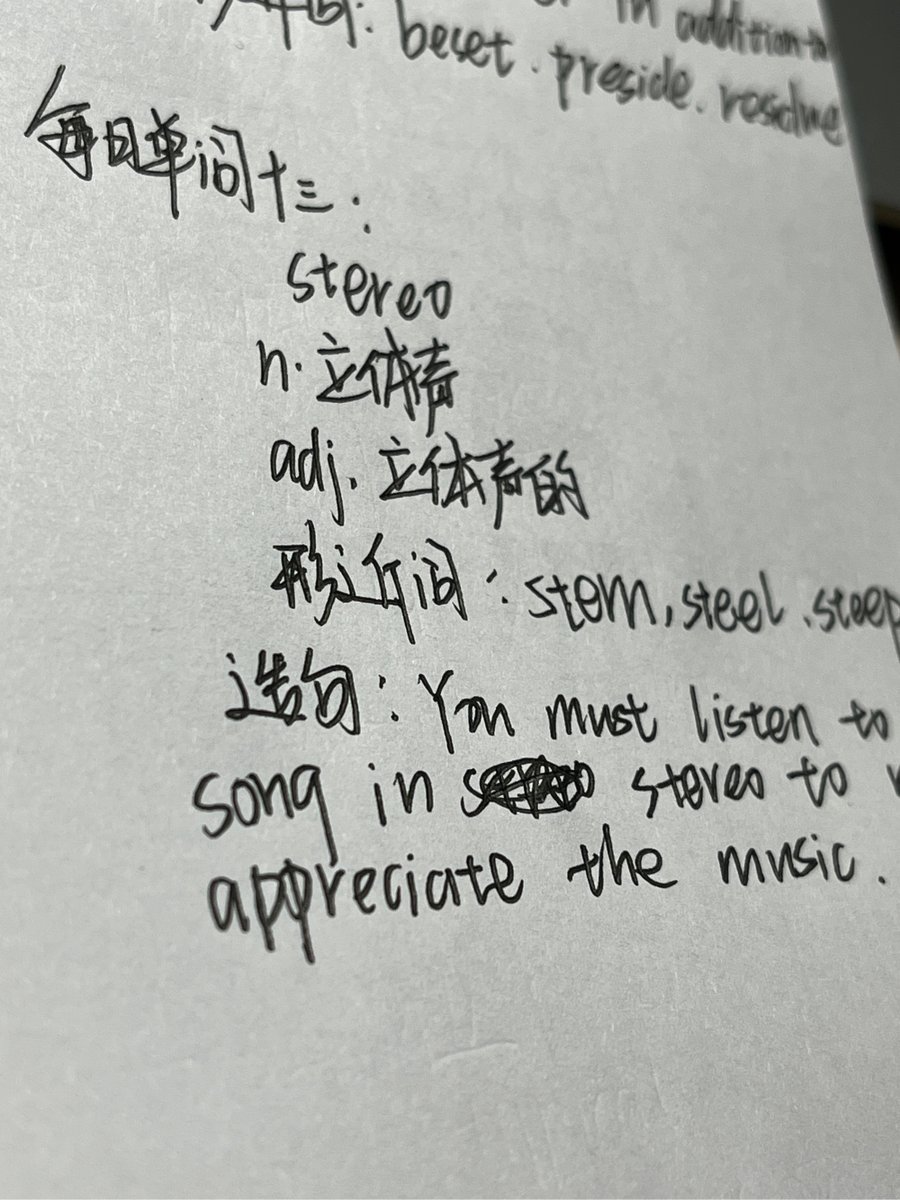 in addition to
beset. preside. residue
每日单词十三:
stereo
n. 立体声
adj. 立体声的
形近词: stem, steel, steep
造句: You must listen to
song in stereo to
appreciate the music.